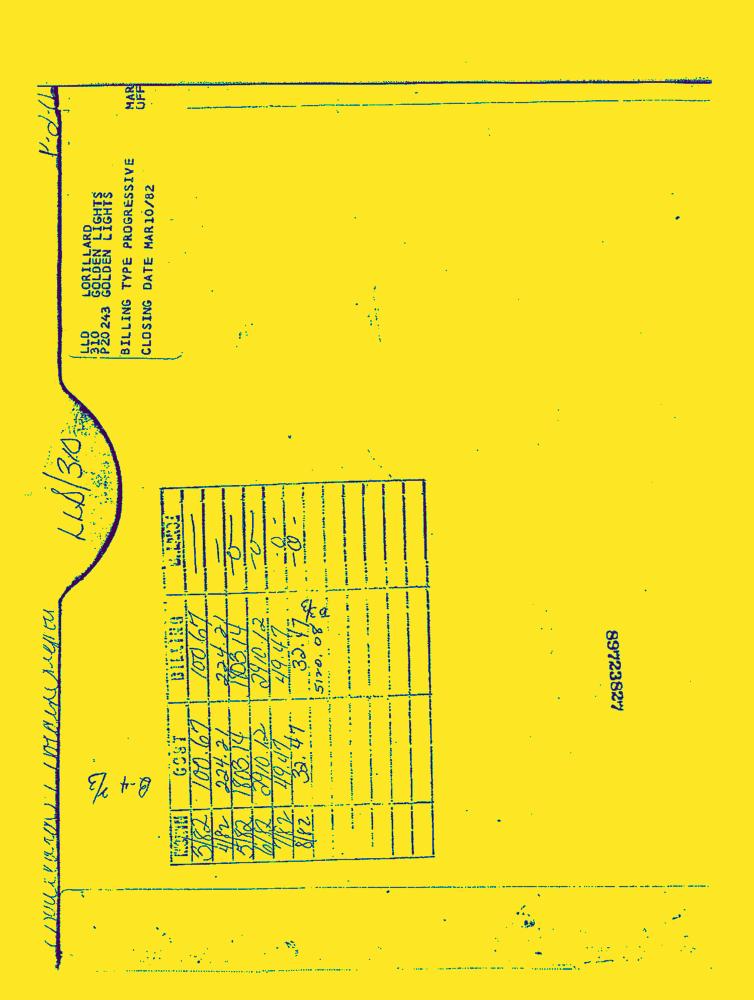 LLD/310
LLD LORILLARD
310 GOLDEN LIGHTS
P20243 GOLDEN LIGHTS
BILLING TYPE PROGRESSIVE
CLOSING DATE MAR10/82
MAR
OFF
MONTH COST BILLING
3/82 100.67 100.67 —
4/82 224.21 224.21 —
5/82 1803.14 1803.14 -0-
6/82 2910.12 2910.12 -0-
7/82 49.47 49.47 -0-
8/82 32.47 32.47 -0-
5120.08
89723827